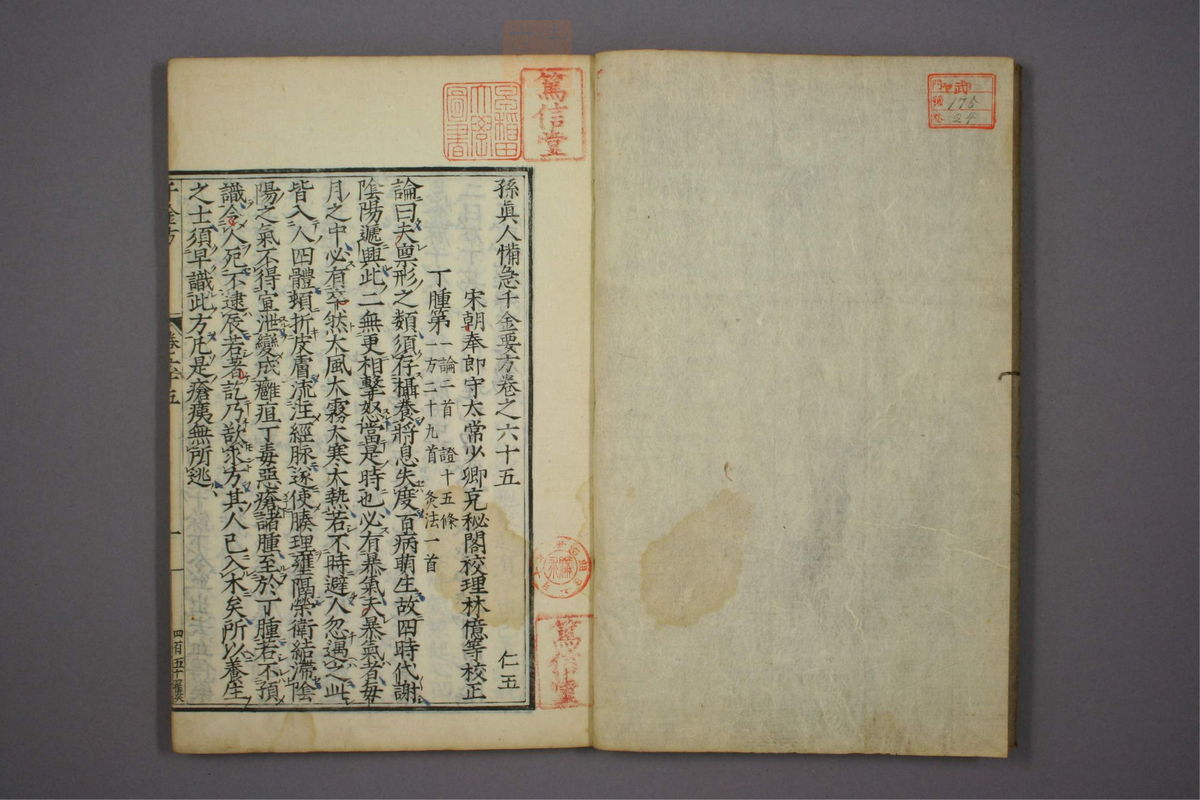 武
175
24
篤信堂
早稲田大學圖書
篤信堂
孫眞人備急千金要方卷之六十五
仁五
宋朝奉郎守太常少卿充秘閣校理林億等校正
丁腫第一 論一首 證十五條
方二十九首 灸法一首
論曰夫禀形之類須存攝養將息失度百病萌生故四時代謝
陰陽遞興此二無更相擊怒當是時也必有暴氣夫暴氣者每
月之中必有卒然大風大霧大寒大熱若不時避人忽遇之此
皆入人四體頓折皮膚流注經脉遂使腠理雍隔榮衛結滯陰
陽之氣不得宣泄變成癰疽丁毒惡瘡諸腫至於丁腫若不預
識令人死不逮辰若著訖乃欲求方其人已入木矣所以養生
之士須早識此方凡是瘡痍無所逃
千金方
卷六十五
一
四百五十